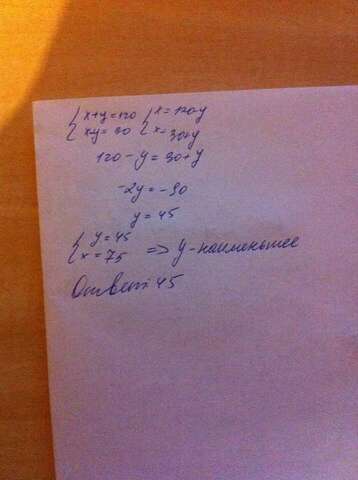 { x+y=120 { x=120-y
{ x-y=30 { x=30+y
120-y=30+y
-2y=-90
y=45
{ y=45
{ x=75 => y-наименьшее
Ответ: 45